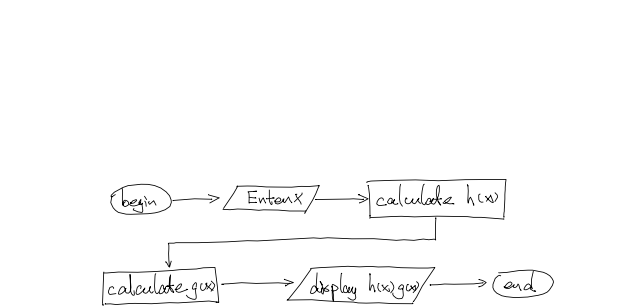 begin
Enter x
calculate h(x)
calculate g(x)
display h(x), g(x)
end